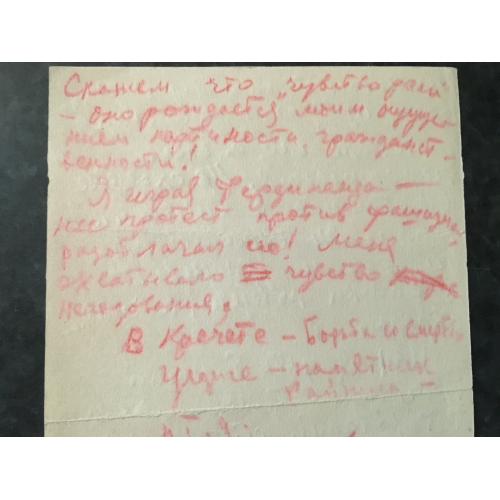 Скажем что "чувство роли"
- оно рождается моим ощуще-
нием партийности, гражданст-
венности!
Я играл Фердинанда -
нес протест против фашизма,
разоблачал его! Меня
охватывало чувство
негодования.
В Кречете - борьба и
памятник